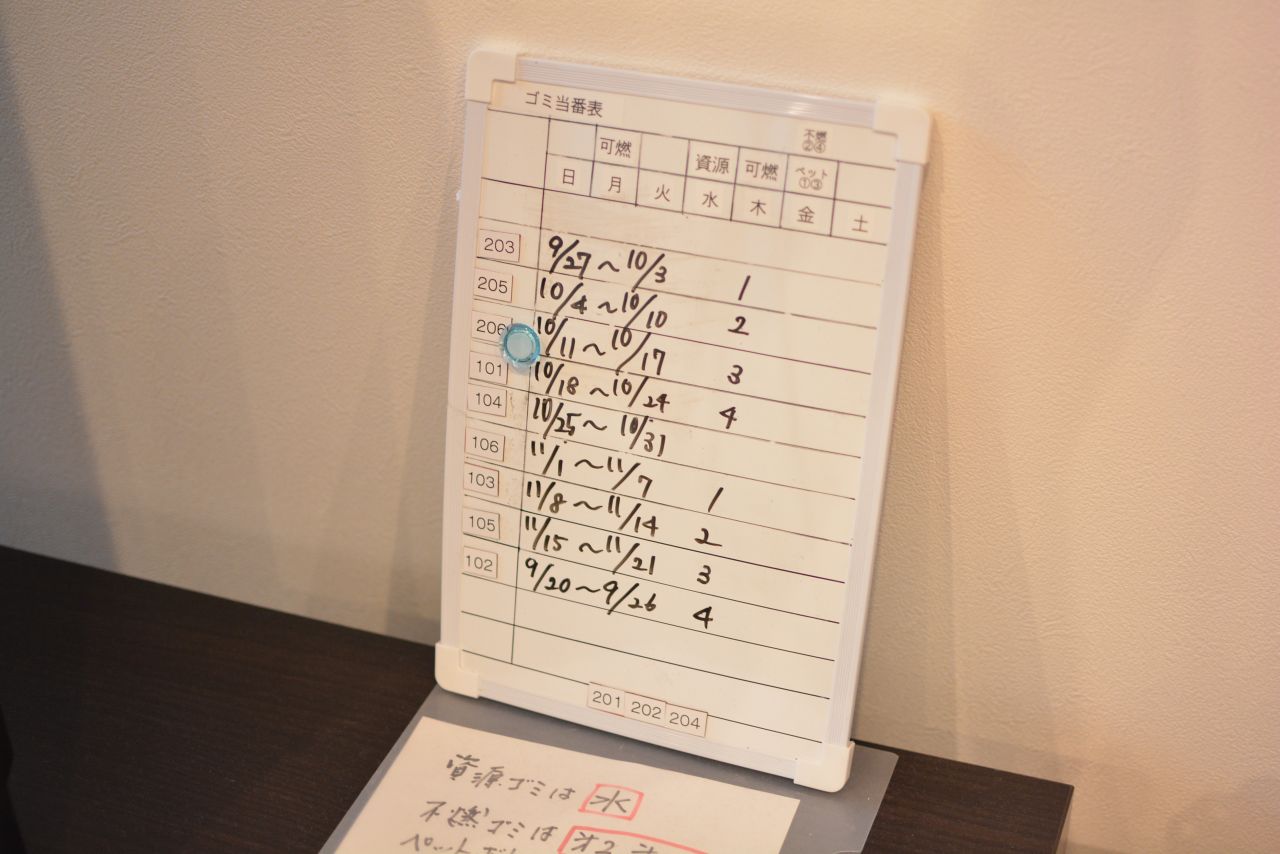 ゴミ当番表
不燃
②④
可燃 資源 可燃 ペット
①③
日 月 火 水 木 金 土
203 9/27 〜 10/3 1
205 10/4 〜 10/10 2
206 10/11 〜 10/17 3
101 10/18 〜 10/24 4
104 10/25 〜 10/31
106 11/1 〜 11/7 1
103 11/8 〜 11/14 2
105 11/15 〜 11/21 3
102 9/20 〜 9/26 4
201 202 204
資源ゴミは 水
不燃ゴミは